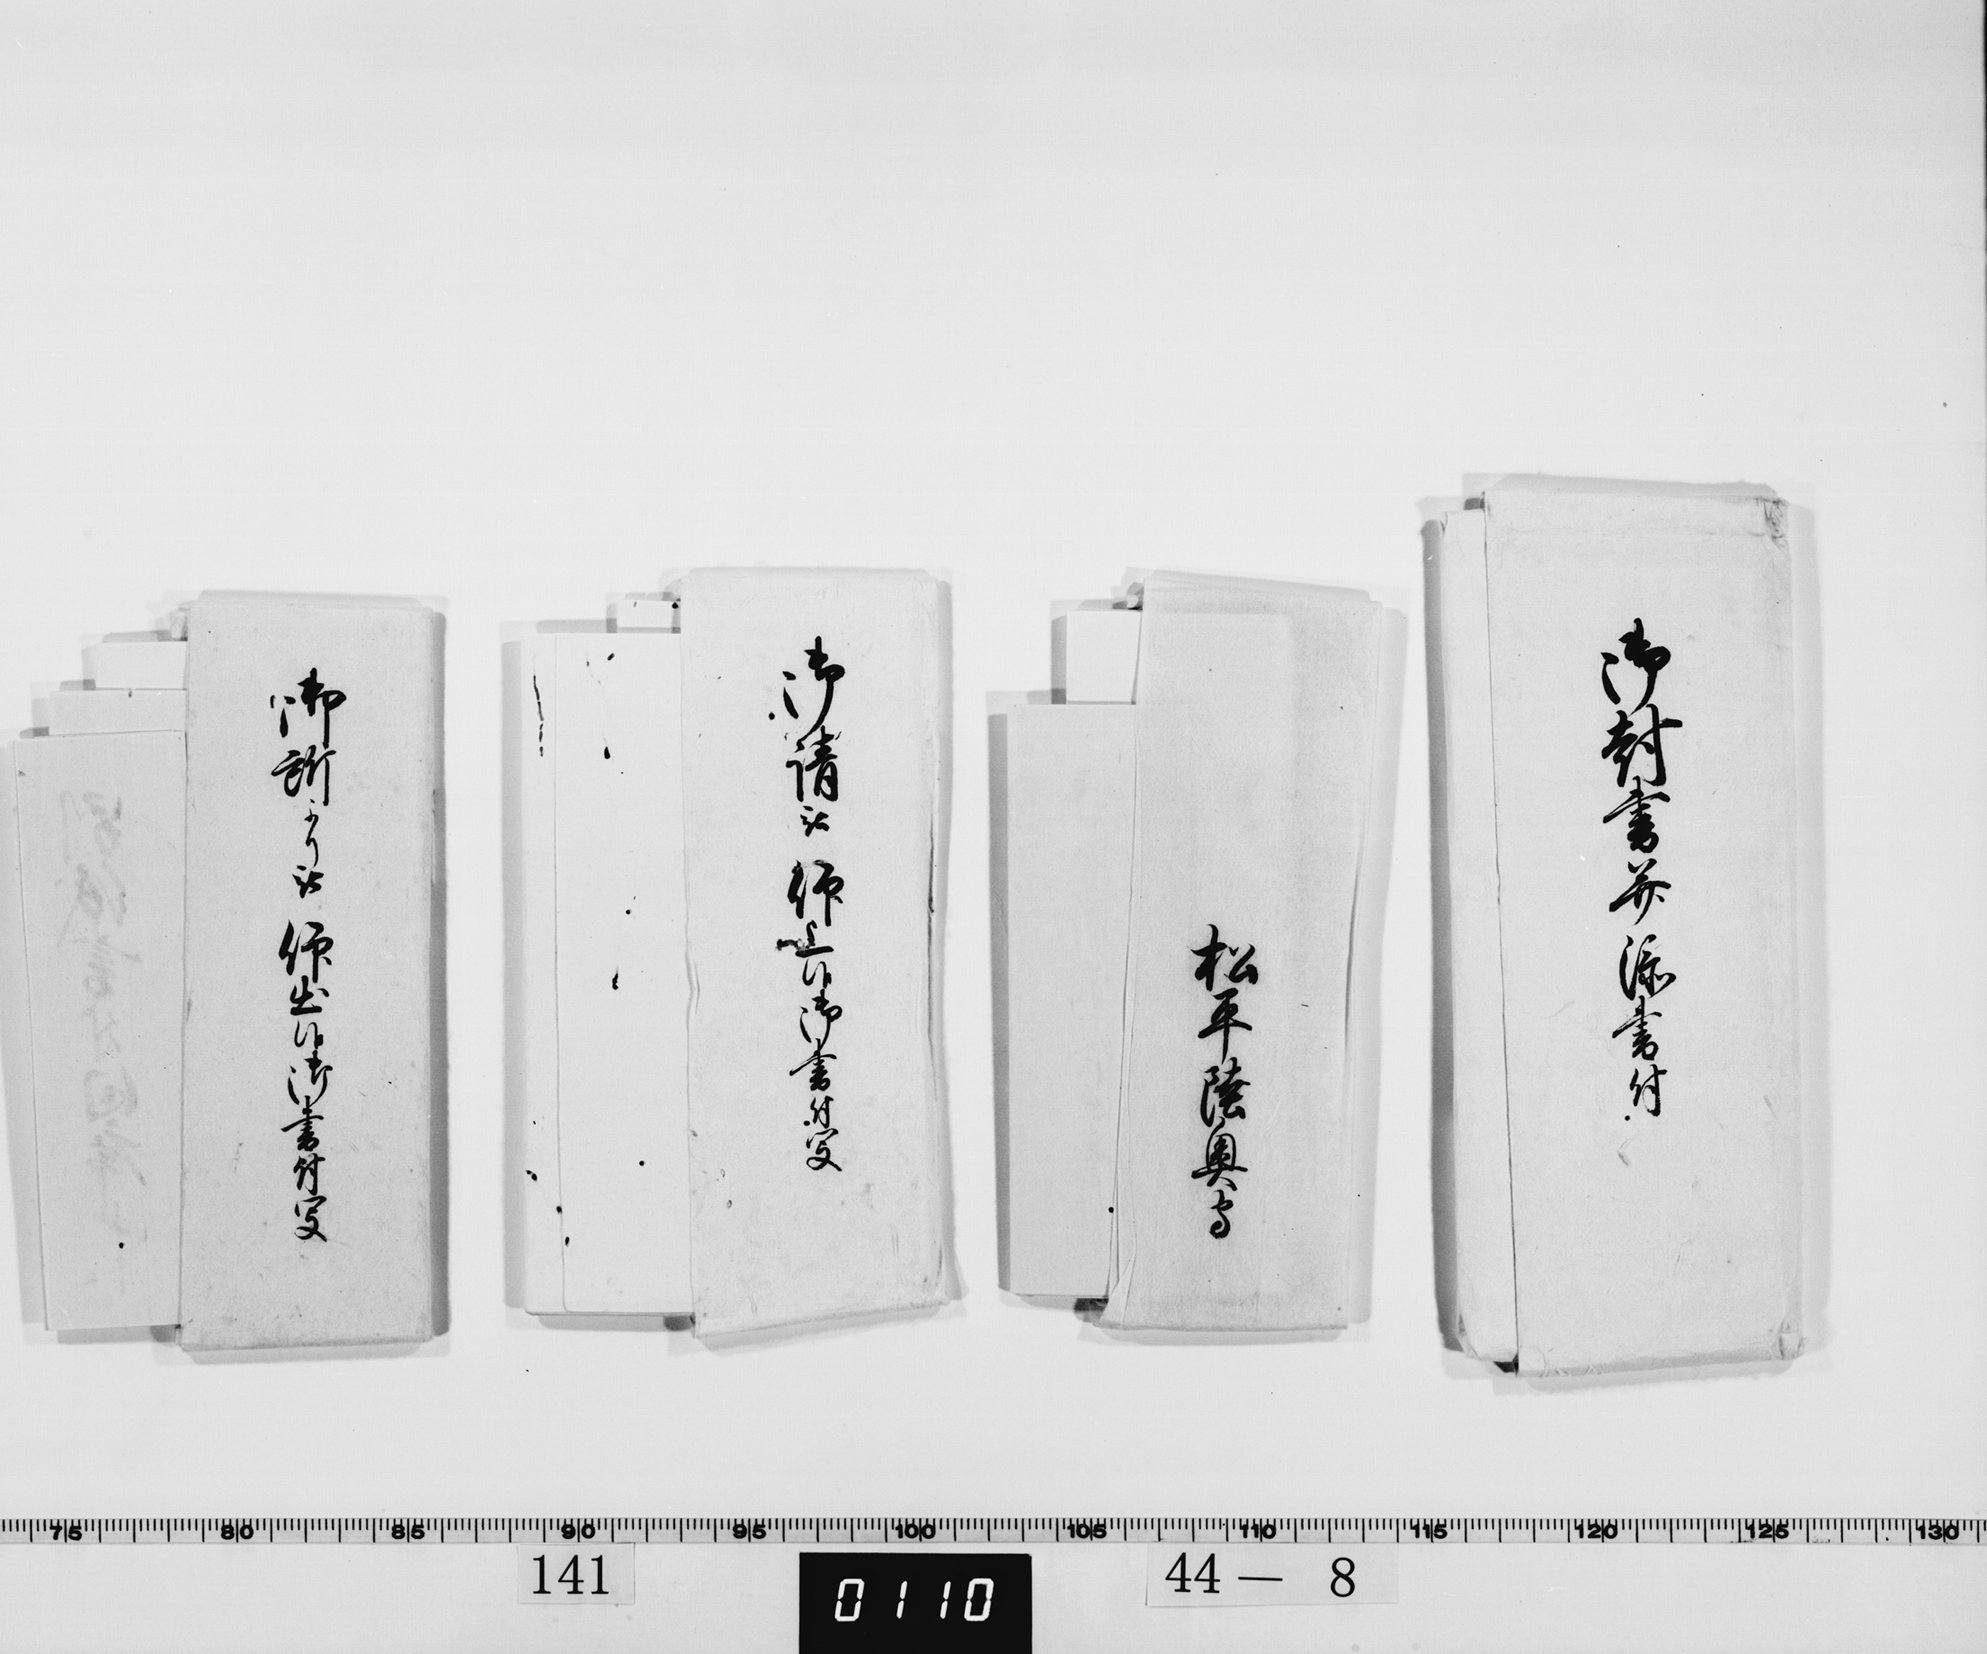 御封書并添書付
松平陸奥守
御請被 仰上候御書付写
御所より被 仰出候御書付写
75 80 85 90 95 100 105 110 115 120 125 130
141
0110
44— 8